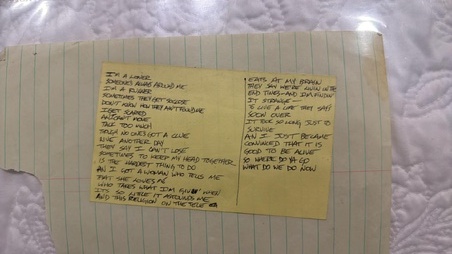 I'M A LONER
SOMEONE'S ALWAYS AROUND ME
I'M A RUNNER
SOMETIMES THEY GET SO CLOSE
DON'T KNOW HOW THEY AIN'T FOUND ME
I GET SCARED
AN I CAN'T MOVE
TALK TOO MUCH
TRULY NO ONE'S GOT A CLUE
LIVE ANOTHER DAY
THEY SAY I CAN'T LOSE
SOMETIMES TO KEEP MY HEAD TOGETHER
IS THE HARDEST THING TO DO
AN I GOT A WOMAN WHO TELLS ME
THAT SHE LOVES ME
WHO TAKES WHAT I'M GIVIN' WHEN
IT'S SO LITTLE IT ASTOUNDS ME
AND THIS RELIGION ON THE TELE
EATS AT MY BRAIN
THEY SAY WE'RE LIVIN IN THE
END TIMES—AND I'M FINDIN'
IT STRANGE—
TO LIVE A LIFE THEY SAY'S
SOON OVER
IT TOOK SO LONG JUST TO
SURVIVE
AN I JUST BECAME
CONVINCED THAT IT IS
GOOD TO BE ALIVE
SO WHERE DO YA GO
WHAT DO WE DO NOW